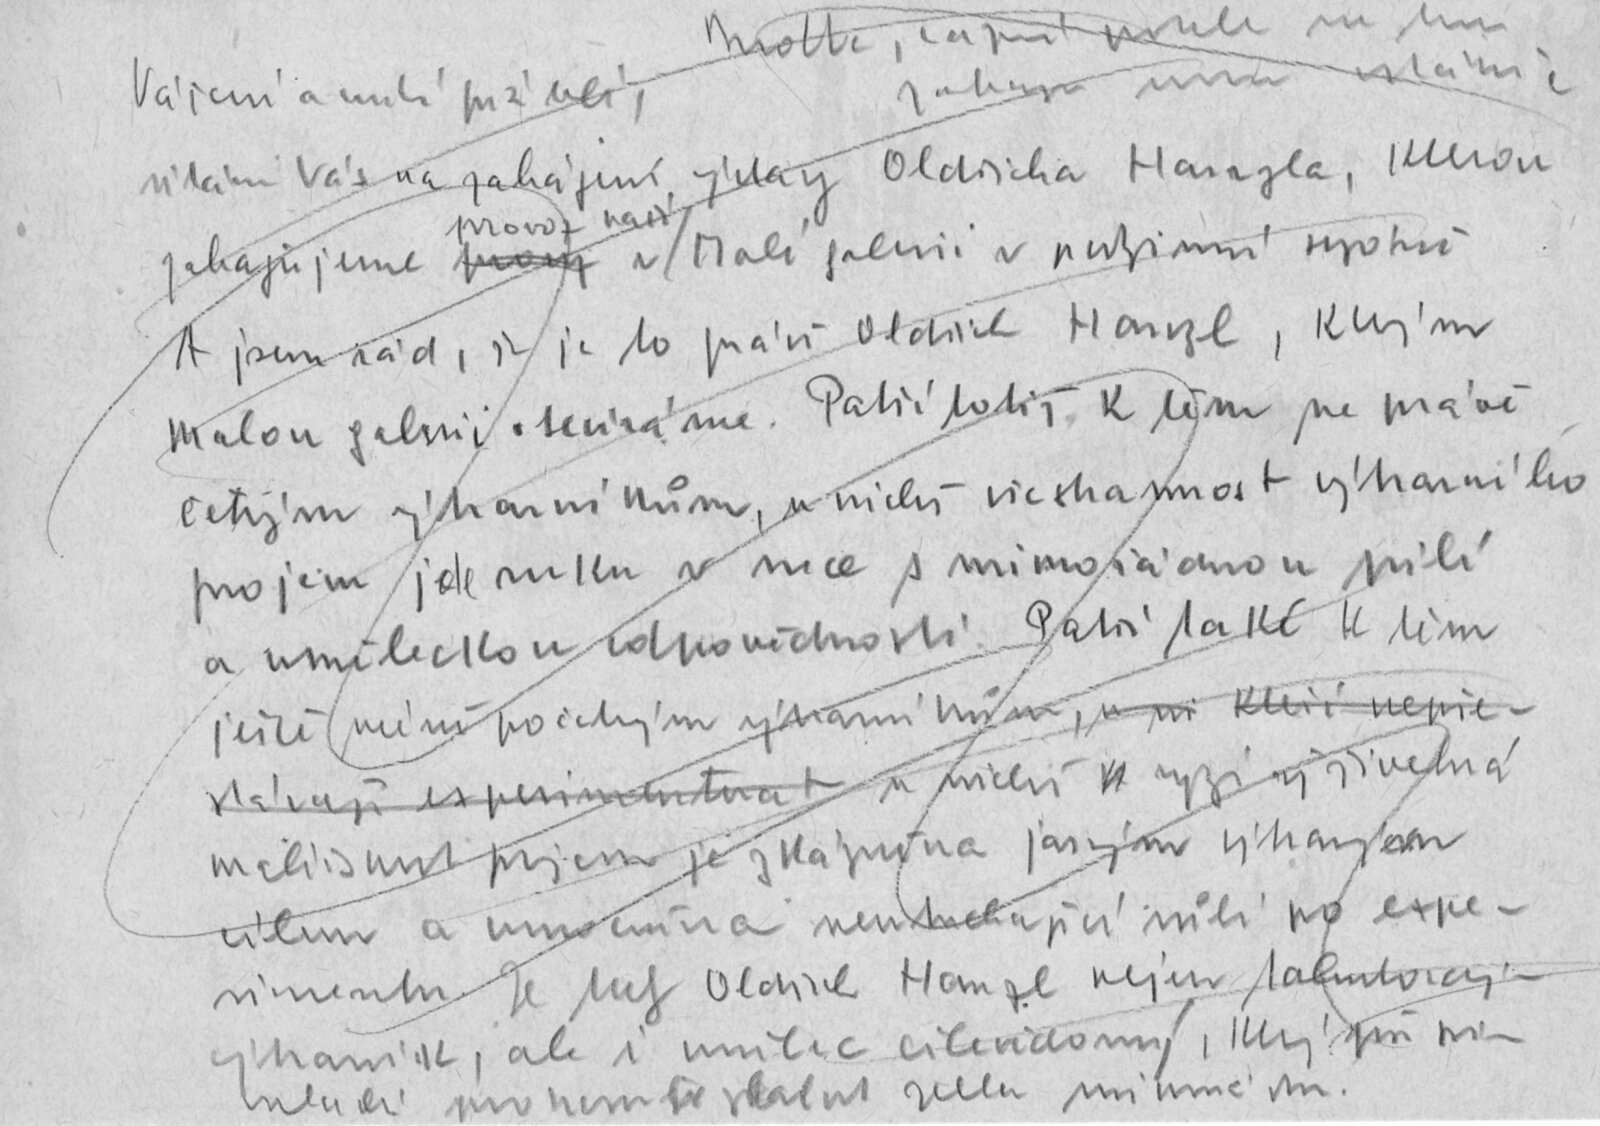 Motto,
Vážení a milí přátelé,
vítám Vás na zahájení výstavy Oldřicha Hanzla, kterou
zahajujeme provoz naší
v Malé galerii v podzimní sezóně
A jsem rád, že je to právě Oldřich Hanzl, kterým
malou galerii otevíráme. Patří totiž k těm ne právě
četným výtvarníkům, u nichž všestrannost výtvarného
projevu jde ruku v ruce s mimořádnou pílí
a uměleckou odpovědností. Patří také k těm
ještě méně početným výtvarníkům, u ni kteří nepře-
stávají experimentovat u nichž ryzí živelná
malířskost projevu je zkázněna jasným výtvarným
cílem a umocněna neutuchající vůlí po expe-
rimentu. Je tedy Oldřich Hanzl nejen talentovaný
výtvarník, ale i umělec cílevědomý, který